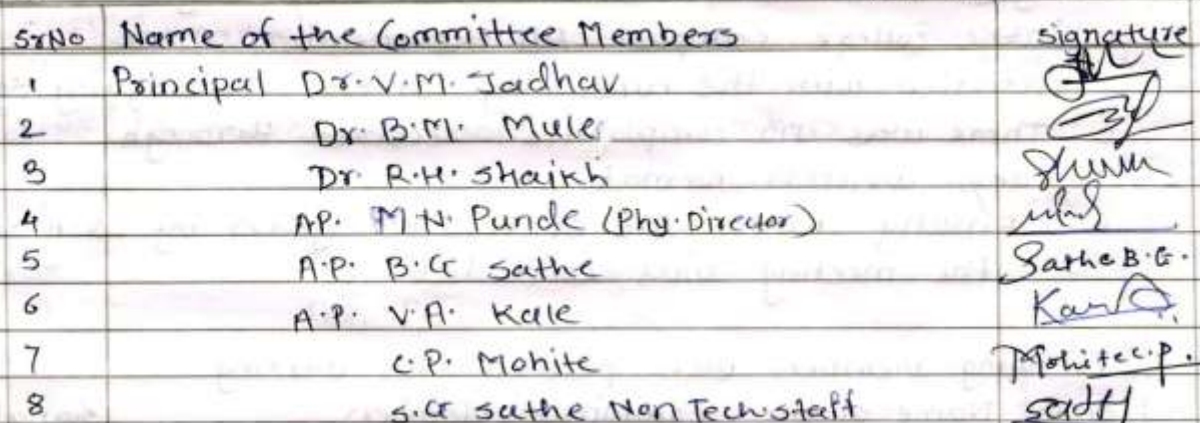 SrNo Name of the Committee Members signature
1 Principal Dr. V. M. Jadhav
2 Dr. B. M. Mule
3 Dr R. H. Shaikh
4 AP. M N. Punde (Phy. Director)
5 A.P. B. G Sathe Sathe B. G.
6 A.P. V. A. Kale
7 C. P. Mohite Mohite C. P.
8 S. G Sathe Non Tech staff